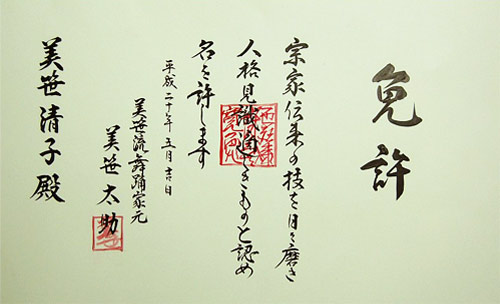 免許
宗家伝来の技を日々磨き
人格見識適しきものと認め
名を許します
平成二十年五月吉日
美笹流舞踊家元
美笹太助
美笹清子殿